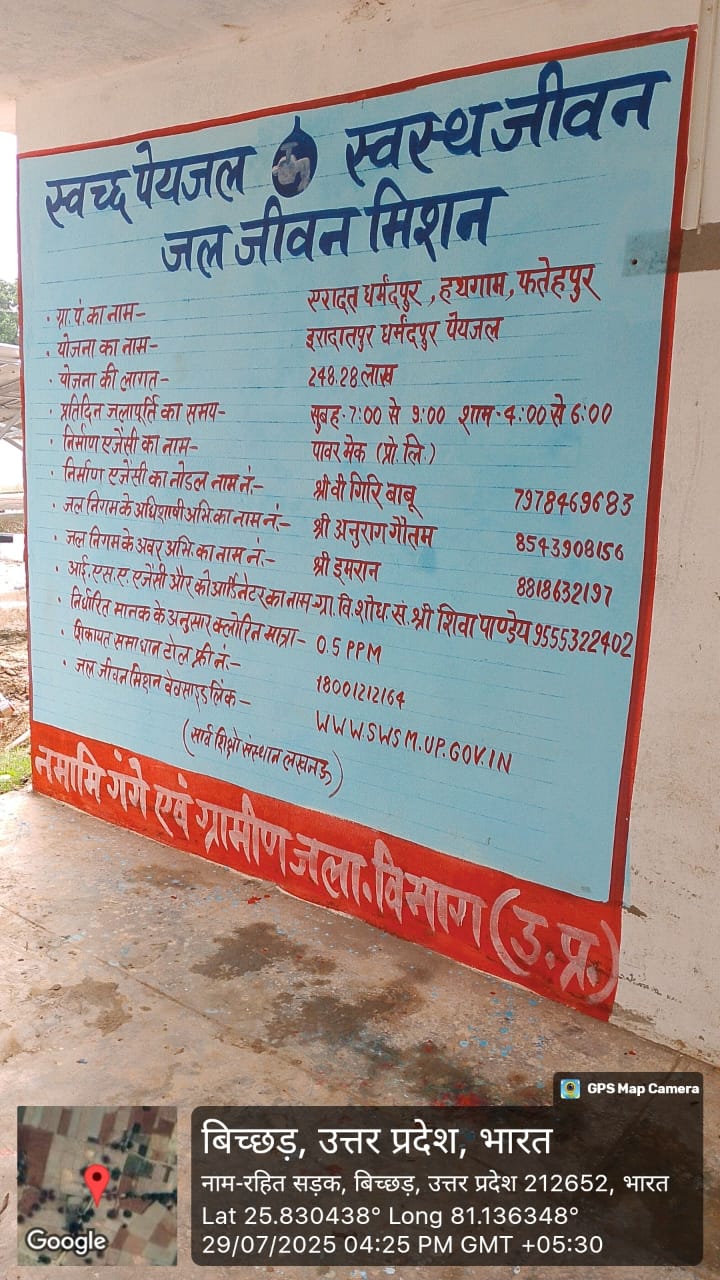 स्वच्छ पेयजल स्वस्थ जीवन
जल जीवन मिशन
• ग्रा. पं. का नाम- एरादत धर्मदपुर, हथगाम, फतेहपुर
• योजना का नाम- इरादातपुर धर्मदपुर पेयजल
• योजना की लागत- 248.28 लाख
• प्रतिदिन जलापूर्ति का समय- सुबह-7:00 से 9:00 शाम-4:00 से 6:00
• निर्माण एजेंसी का नाम- पावर मेक (प्रो. लि.)
• निर्माण एजेंसी का नोडल नाम नं.- श्री वी गिरि बाबू 7978469683
• जल निगम के अधिशाषी अभि. का नाम नं.- श्री अनुराग गौतम 8543908156
• जल निगम के अवर अभि. का नाम नं.- श्री इमरान 8818632197
• आई. एस. ए. एजेंसी और कोआर्डिनेटर का नाम-ग्रा. वि. शोध. सं. श्री शिवा पाण्डेय 9555322402
• निर्धारित मानक के अनुसार क्लोरिन मात्रा- 0.5 PPM
• शिकायत समाधान टोल फ्री नं.- 18001212164
• जल जीवन मिशन वेबसाइड लिंक- WWW.SWSM.UP.GOV.IN
(सार्व शिक्षो संस्थान लखनऊ)
नमामि गंगे एवं ग्रामीण जला. विभाग (उ.प्र.)
GPS Map Camera
बिच्छड़, उत्तर प्रदेश, भारत
नाम-रहित सड़क, बिच्छड़, उत्तर प्रदेश 212652, भारत
Lat 25.830438° Long 81.136348°
29/07/2025 04:25 PM GMT +05:30
Google